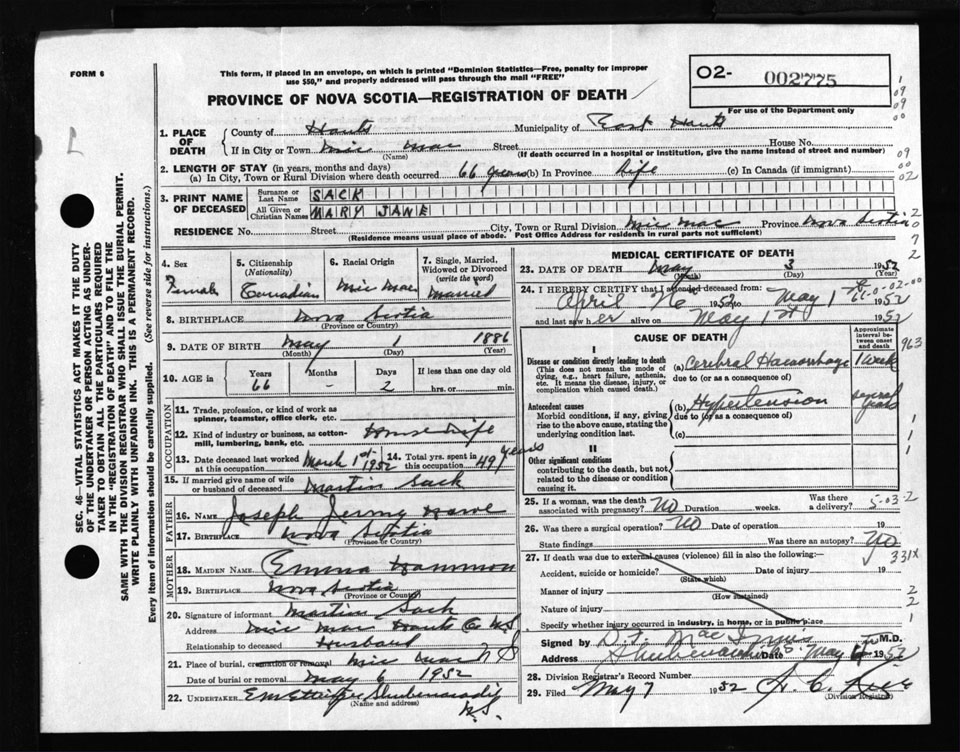 FORM 6
This form, if placed in an envelope, on which is printed "Dominion Statistics—Free, penalty for improper
use $50," and properly addressed will pass through the mail "FREE"
PROVINCE OF NOVA SCOTIA—REGISTRATION OF DEATH
O2- 002775
For use of the Department only
1. PLACE OF DEATH
County of Hants Municipality of East Hants
If in City or Town Mic Mac Street House No.
(Name) (If death occurred in a hospital or institution, give the name instead of street and number)
2. LENGTH OF STAY (in years, months and days)
(a) In City, Town or Rural Division where death occurred 66 years (b) In Province Life (c) In Canada (if immigrant)
3. PRINT NAME OF DECEASED
Surname or Last Name SACK
All Given or Christian Names MARY JANE
RESIDENCE No. Street City, Town or Rural Division Mic Mac Province Nova Scotia
(Residence means usual place of abode. Post Office Address for residents in rural parts not sufficient)
4. Sex Female
5. Citizenship (Nationality) Canadian
6. Racial Origin Mic Mac
7. Single, Married, Widowed or Divorced (write the word) Married
8. BIRTHPLACE Nova Scotia
(Province or Country)
9. DATE OF BIRTH May 1 1886
(Month) (Day) (Year)
10. AGE in Years 66 Months - Days 2 If less than one day old hrs. or min.
OCCUPATION
11. Trade, profession, or kind of work as spinner, teamster, office clerk, etc.
12. Kind of industry or business, as cotton-mill, lumbering, bank, etc. Housewife
13. Date deceased last worked at this occupation March 1st 1952
14. Total yrs. spent in this occupation 49 years
15. If married give name of wife or husband of deceased Martin Sack
FATHER
16. NAME Joseph Jermy
17. BIRTHPLACE Nova Scotia
(Province or Country)
MOTHER
18. MAIDEN NAME Emma Hammon
19. BIRTHPLACE Nova Scotia
(Province or Country)
20. Signature of informant Martin Sack
Address Mic Mac Hants Co N.S.
Relationship to deceased Husband
21. Place of burial, cremation or removal Mic Mac N S
Date of burial or removal May 6 1952
22. UNDERTAKER Shubenacadie
(Name and address)
N.S.
MEDICAL CERTIFICATE OF DEATH
23. DATE OF DEATH May 3 1952
(Month) (Day) (Year)
24. I HEREBY CERTIFY that I attended deceased from:
April 26 1952 to May 1st 1952
and last saw her alive on May 1st 1952
CAUSE OF DEATH
Approximate interval between onset and death
I
Disease or condition directly leading to death
(This does not mean the mode of dying, e.g., heart failure, asthenia, etc. It means the disease, injury, or complication which caused death.)
(a) Cerebral Haemorrhage 1 week
due to (or as a consequence of)
Antecedent causes
Morbid conditions, if any, giving rise to the above cause, stating the underlying condition last.
(b) Hypertension several years
due to (or as a consequence of)
(c)
II
Other significant conditions
contributing to the death, but not related to the disease or condition causing it.
25. If a woman, was the death associated with pregnancy? No Duration weeks. Was there a delivery? 5-03-2
26. Was there a surgical operation? No Date of operation 19
State findings Was there an autopsy? No
331X
27. If death was due to external causes (violence) fill in also the following:—
Accident, suicide or homicide? Date of injury 19
(State which)
Manner of injury
(How sustained)
Nature of injury
Specify whether injury occurred in industry, in home, or in public place
Signed by D. F. MacInnis M.D.
Address Shubenacadie N.S. Date May 1952
28. Division Registrar's Record Number
29. Filed May 7 1952
(Division Registrar)
SEC. 46—VITAL STATISTICS ACT MAKES IT THE DUTY
OF THE UNDERTAKER OR PERSON ACTING AS UNDER-
TAKER TO OBTAIN ALL THE PARTICULARS REQUIRED
IN THE "REGISTRATION OF DEATH" AND TO FILE THE
SAME WITH THE DIVISION REGISTRAR WHO SHALL ISSUE THE BURIAL PERMIT.
WRITE PLAINLY WITH UNFADING INK. THIS IS A PERMANENT RECORD.
Every item of information should be carefully supplied. (See reverse side for instructions.)